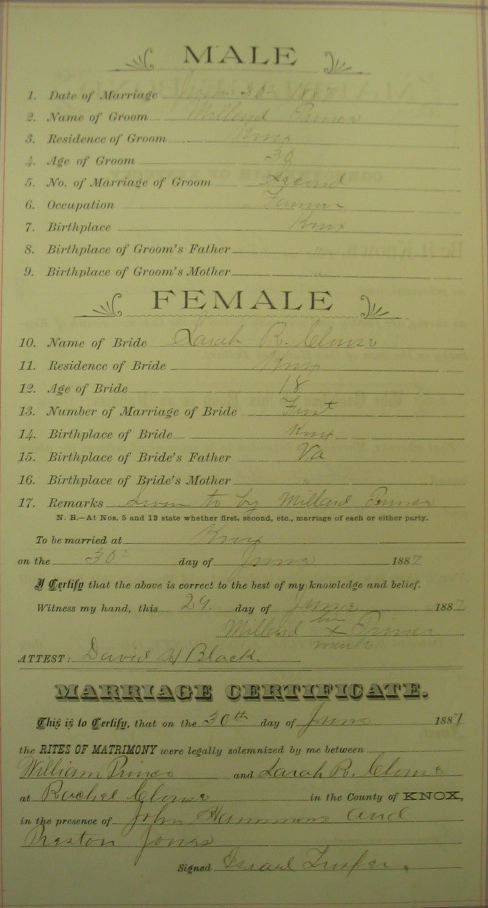 MALE
1. Date of Marriage June 30 1887
2. Name of Groom Millard
3. Residence of Groom Knox
4. Age of Groom 30
5. No. of Marriage of Groom Second
6. Occupation Farmer
7. Birthplace Knox
8. Birthplace of Groom's Father "
9. Birthplace of Groom's Mother "
FEMALE
10. Name of Bride Sarah R.
11. Residence of Bride Knox
12. Age of Bride 18
13. Number of Marriage of Bride First
14. Birthplace of Bride Knox
15. Birthplace of Bride's Father Va
16. Birthplace of Bride's Mother "
17. Remarks to by Millard
N. B.—At Nos. 5 and 13 state whether first, second, etc., marriage of each or either party.
To be married at Knox
on the 30th day of June 1887
I Certify that the above is correct to the best of my knowledge and belief.
Witness my hand, this 29 day of June 1887
his
Millard x
mark
ATTEST: David H Black.
MARRIAGE CERTIFICATE.
This is to Certify, that on the 30th day of June 1887
the RITES OF MATRIMONY were legally solemnized by me between
William and Sarah R.
at Rachel in the County of KNOX,
in the presence of John Hammons and
Preston Jones
Signed Israel